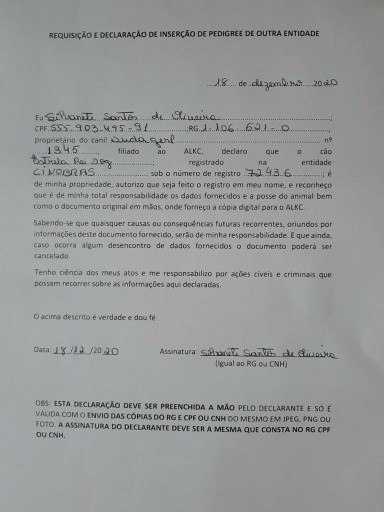 REQUISIÇÃO E DECLARAÇÃO DE INSERÇÃO DE PEDIGREE DE OUTRA ENTIDADE
18 de dezembro 2020
Eu Silvaniti Santos de Oliveira
CPF 555.903.495-91 RG 1.106.621-0
proprietário do canil nº
1345 filiado ao ALKC, declaro que o cão
Estrela Rei Dog registrado na entidade
CINOBRAS sob o número de registro 72436; é
de minha propriedade, autorizo que seja feito o registro em meu nome, e reconheço
que é de minha total responsabilidade os dados fornecidos e a posse do animal bem
como o documento original em mãos, onde forneço a cópia digital para o ALKC.
Sabendo-se que quaisquer causas ou consequências futuras recorrentes, oriundos por
informações deste documento fornecido, serão de minha responsabilidade. E que ainda,
caso ocorra algum desencontro de dados fornecidos o documento poderá ser
cancelado.
Tenho ciência dos meus atos e me responsabilizo por ações cíveis e criminais que
possam recorrer sobre as informações aqui declaradas.
O acima descrito é verdade e dou fé
Data: 18/12/2020 Assinatura: Silvaniti Santos de Oliveira
(Igual ao RG ou CNH)
OBS: ESTA DECLARAÇÃO DEVE SER PREENCHIDA A MÃO PELO DECLARANTE E SÓ É
VÁLIDA COM O ENVIO DAS CÓPIAS DO RG E CPF OU CNH DO MESMO EM JPEG, PNG OU
FOTO. A ASSINATURA DO DECLARANTE DEVE SER A MESMA QUE CONSTA NO RG CPF
OU CNH.